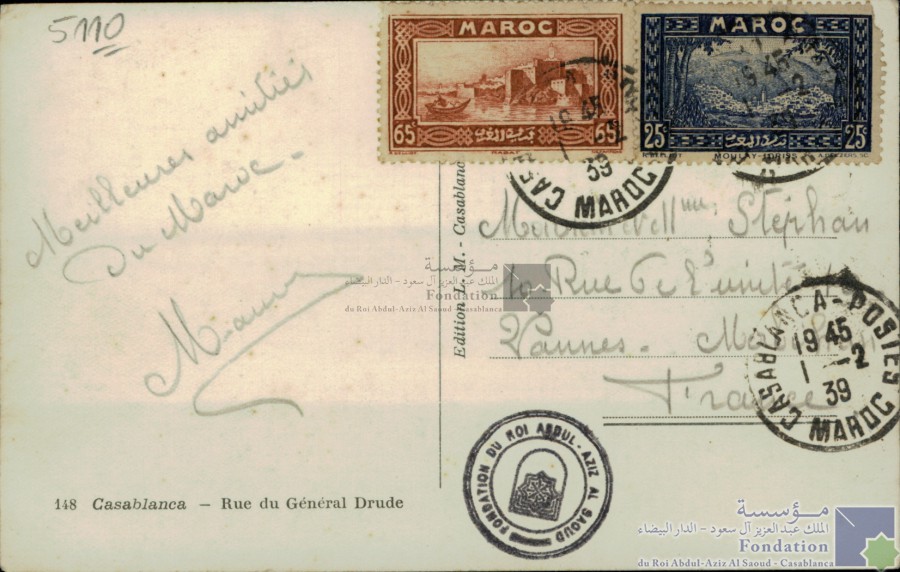 5110
Meilleures amitiés
Du Maroc -
MAROC
65c
65c
RABAT
MAROC
25c
25c
MOULAY-IDRISS
CASABLANCA-POSTES
19 45
1 - 2
39
MAROC
Stéphan
10 Rue de
Vannes - Morbihan
France
Edition L. M. - Casablanca
مؤسسة
الملك عبد العزيز آل سعود - الدار البيضاء
Fondation
du Roi Abdul-Aziz Al Saoud - Casablanca
CASABLANCA-POSTES
19 45
1 - 2
39
MAROC
FONDATION DU ROI ABDUL-AZIZ AL SAOUD
148 Casablanca - Rue du Général Drude
مؤسسة
الملك عبد العزيز آل سعود - الدار البيضاء
Fondation
du Roi Abdul-Aziz Al Saoud - Casablanca